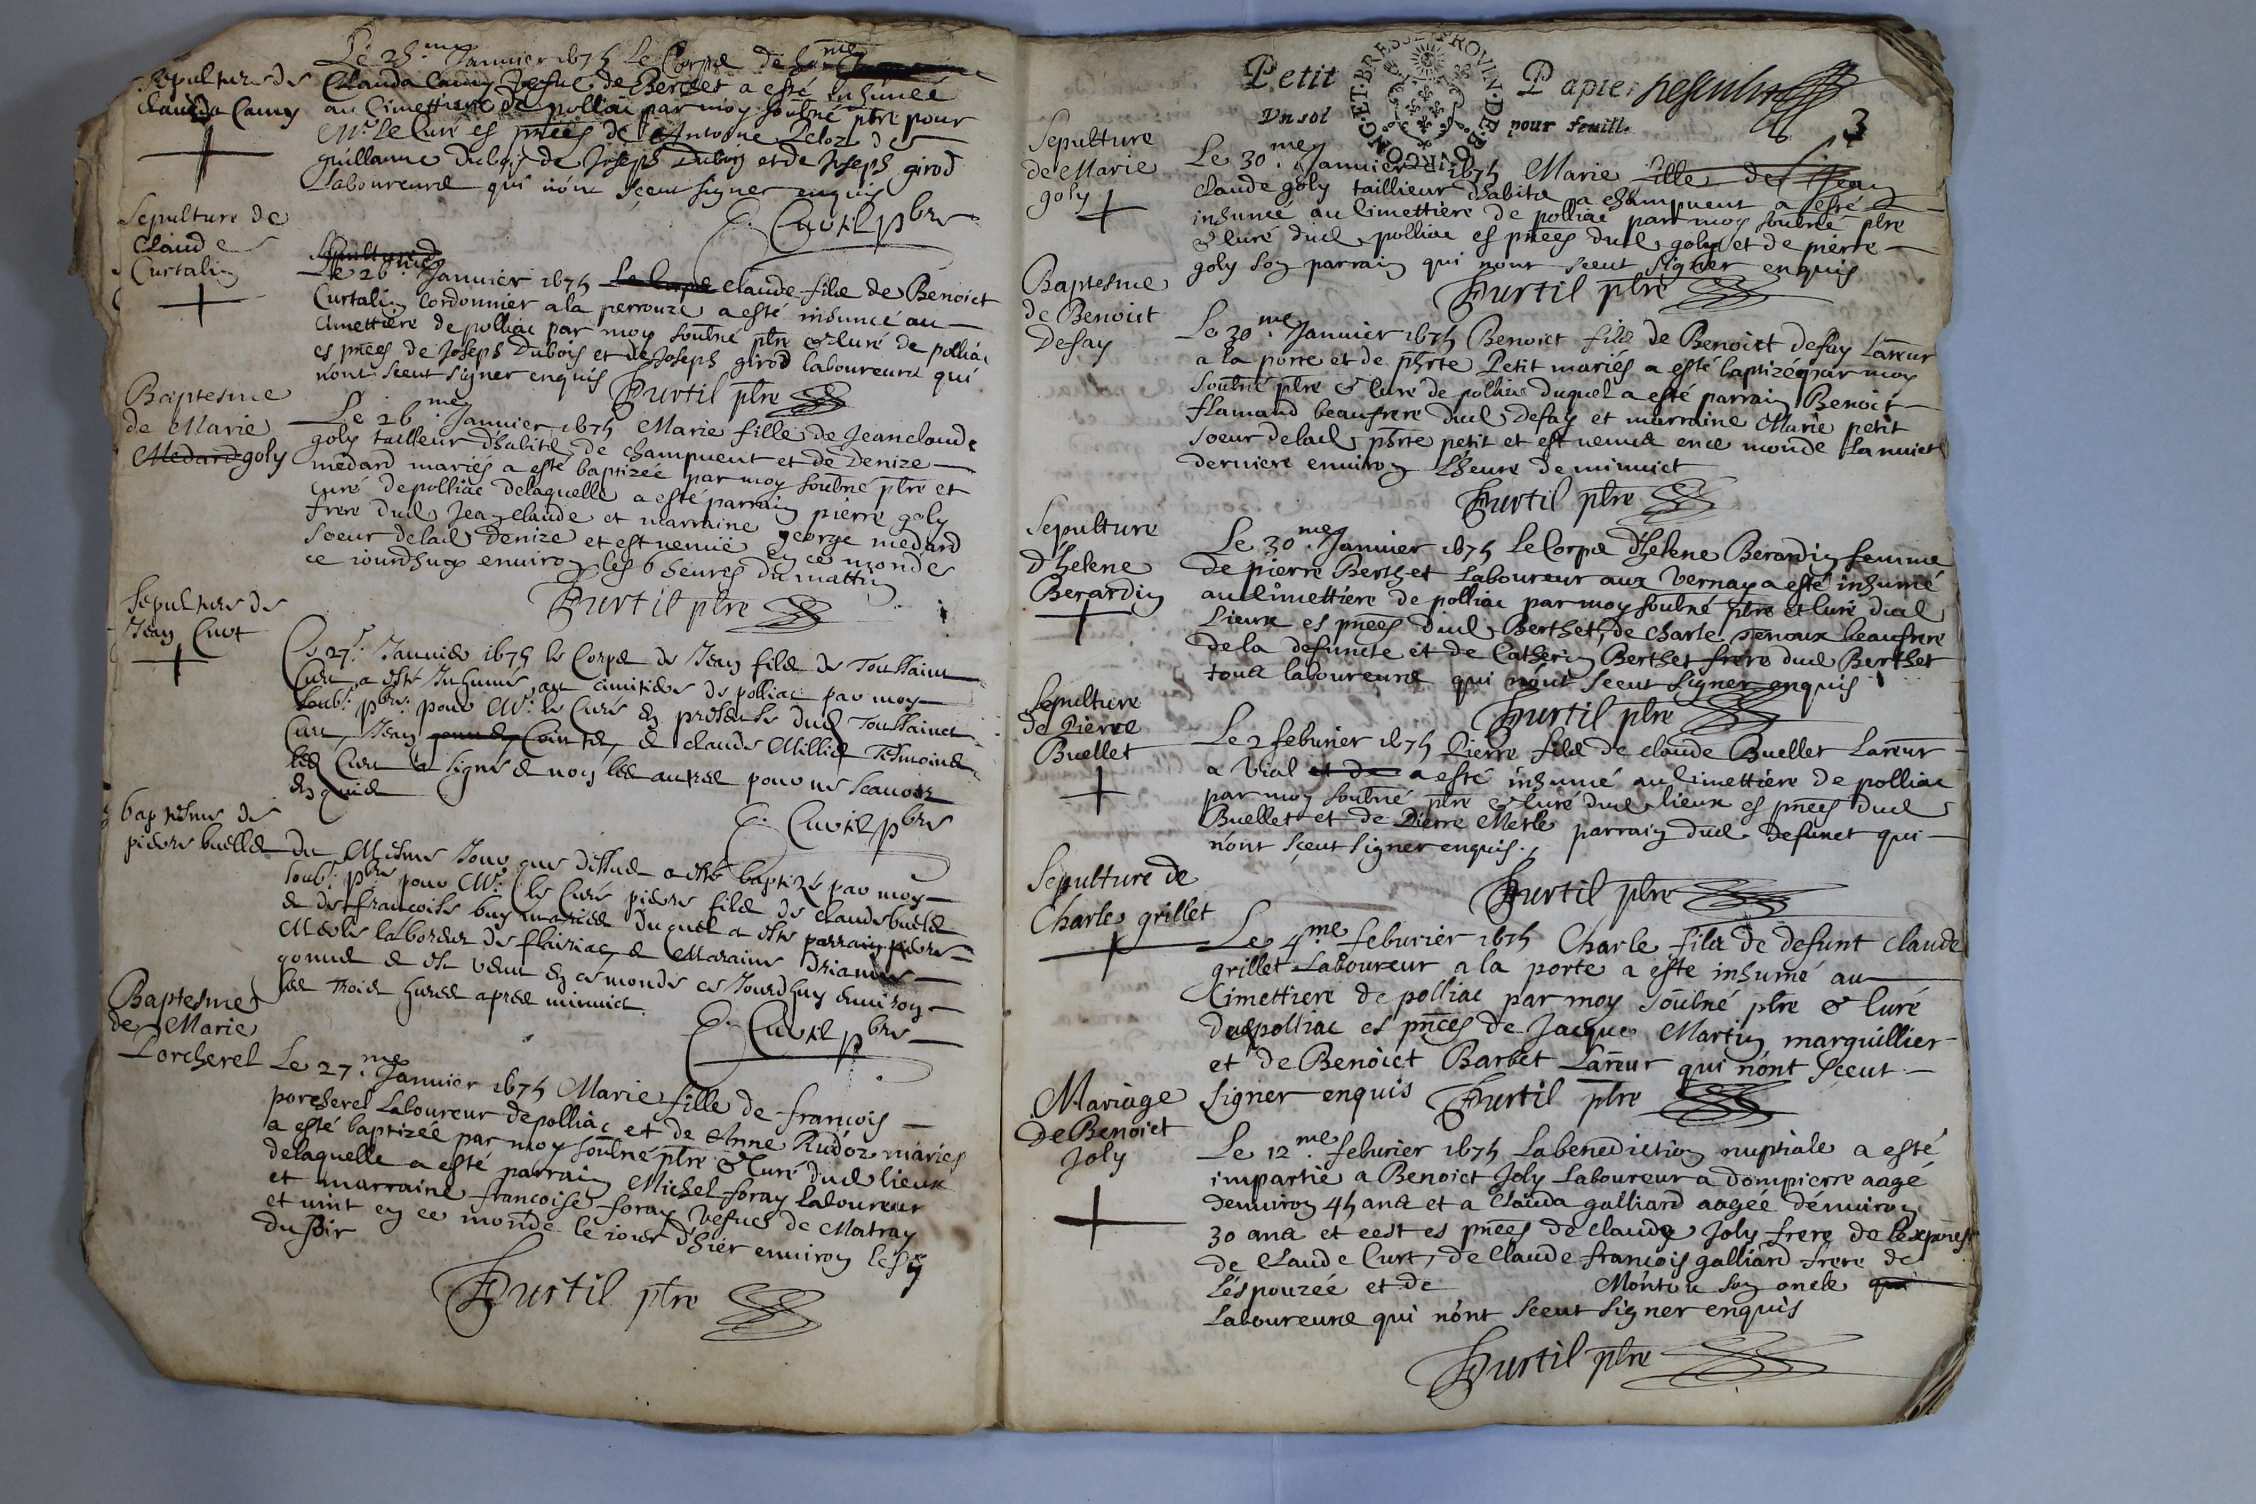 Sepulture de
Clauda Camy
Le 25.me Janvier 1675 Le Corps de
Clauda Camy Vefve de Berthet a esté inhumée
au Cimettiere de polliac par moy soubné ptre pour
Mr. Le Curé es pnces de Antoine Peloz de
guillaume Dubois de Joseph Dubois et de Joseph girod
Laboureurs qui n'ont sçeut signer enquis
C. Cuvtil pbre
Sepulture de
Claude
Curtalin
Sepulture de
Le 26. Janvier 1675 Le Corps claude fils de Benoict
Curtalin Cordonnier a la perrouze a esté inhumé au
Cimettiere de polliac par moy soubné ptre & Curé de polliac
es pnces de Joseph Dubois et de Joseph girod laboureurs qui
nont sceut signer enquis Curtil ptre
Baptesme
de Marie
Medard goly
Le 26.me Janvier 1675 Marie fille de Jean claude
goly tailleur d'habits de champvent et de Denize
medard mariés a esté baptizée par moy soubné ptre et
curé de polliac de laquelle a esté parrain pierre goly
frere dud Jean claude et marraine george medard
soeur de lad Denize et est venue en ce monde
ce iourdhuy environ les 6 heures du mattin
Curtil ptre
Sepulture de
Jean Cuet
Le 27. Janvier 1675 le Corps de Jean fils de Toussainct
Curt a esté Inhumé au cimitiere de polliac par moy
soub. pbre. pour Mr. le Curé en presence dud Toussainct
Curt, Jean Cointet, & claude Milliet Tesmoins
led Curt a signé & non les autres pour ne scavoir
Enquis
C. Cuvtil pbre
baptesme de
pierre buellet
du Mesme Jour que dessus a esté baptizé par moy
soub. pbre pour Mr. le Curé pierre fils de claude buellet
& de francoise buy mariés duquel a esté parrain pierre
Merle laboreur de flairiac & Maraine Driane
gonnet & est venu en ce monde ce Jourdhuy environ
les trois hures apres minuict.
C. Cuvtil pbre
Baptesme
de Marie
Porcherel
Le 27.me Janvier 1675 Marie fille de francois
porcherel Laboureur de polliac et de Anne Rudoz mariés
a esté baptizée par moy soubné ptre & Curé dud lieux
de laquelle a esté parrain Michel foray laboureur
et marraine francoise foray Vefve de Matray
et vint en ce monde le iour d'hier environ les 9
du soir
Curtil ptre
Petit Papier
Un sol pour feuill.
BOURG·ET·BRESSE·PROVIN·DE
3
Sepulture
de Marie
goly
Le 30.me Janvier 1675 Marie fille de Jean
claude goly taillieur d'habits a champvent a esté
inhumée au Cimettiere de polliac par moy soubné ptre
& Curé dud polliac es pnces dud goly et de pierre
goly son parrain qui nont sceut signer enquis
Curtil ptre
Baptesme
de Benoict
Defay
Le 30.me Janvier 1675 Benoict fils de Benoict defay Lareur
a la porte et de pbrte Petit mariés a esté baptizé par moy
soubné ptre & Curé de polliac duquel a esté parrain Benoict
flamand beaufrere dud Defay et marraine Marie petit
soeur de lad pbrte petit et est venus en ce monde la nuict
derniere environ l'heure de minuict
Curtil ptre
Sepulture
d'helene
Berardin
Le 30.me Janvier 1675 Le Corps d'helene Berardin femme
de pierre Berthet Laboureur aux Vernay a esté inhumé
au Cimettiere de polliac par moy soubné ptre et Curé dud
Lieux es pnces dud Berthet, de Charle Tenoux beaufrere
de la defuncte et de Catherin Berthet frere dud Berthet
tous laboureurs qui n'ont sceut signer enquis
Curtil ptre
Sepulture
de Pierre
Buellet
Le 2 feburier 1675 Pierre fils de claude Buellet Lareur
a Vial et de a esté inhumé au Cimettiere de polliac
par moy soubné ptre & Curé dud lieux es pnces dud
Buellet et de Pierre Merle parrain dud defunct qui
n'ont sçeut signer enquis.
Curtil ptre
Sepulture de
Charles grillet
Le 4.me feburier 1675 Charle fils de defunt claude
grillet Laboureur a la porte a este inhumé au
Cimettiere de polliac par moy soubné ptre & Curé
dud polliac es pnces de Jacques Martin marguillier
et de Benoict Barbet Lareur qui n'ont sçeut
signer enquis Curtil ptre
Mariage
de Benoict
Joly
Le 12.me feburier 1675 La benediction nuptiale a esté
impartie a Benoict Joly Laboureur a dompierre aagé
denviron 45 ans et a Clauda galliard aagée d'environ
30 ans et cest es pnces de claude Joly frere de lexpnes
de Claude Curt, de Claude francois galliard frere de
l'espouzée et de Montu son oncle qui
Laboureurs qui n'ont sceut signer enquis
Curtil ptre